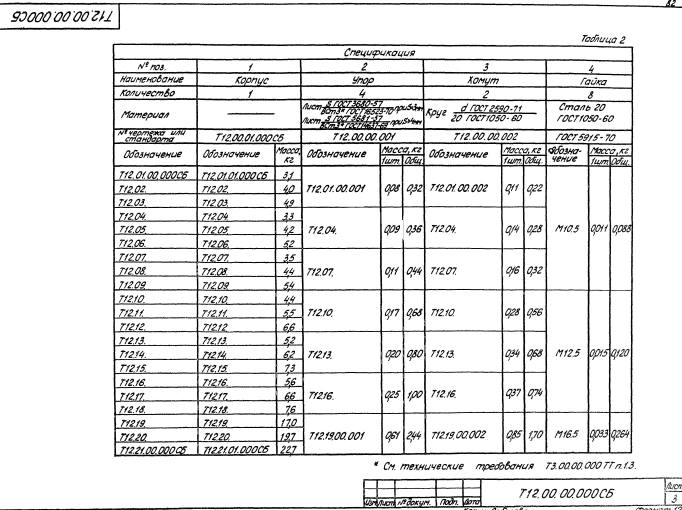 82
Т12.00.00.000СБ
Таблица 2
Спецификация
№ поз. 1 2 3 4
Наименование Корпус Упор Хомут Гайка
Количество 1 4 2 8
Материал Лист Круг d ГОСТ 2590-71 / 20 ГОСТ 1050-60 Сталь 20 ГОСТ 1050-60
№ чертежа или стандарта Т12.00.01.000СБ Т12.00.00.001 Т12.00.00.002 ГОСТ 5915-70
Обозначение Обозначение Масса, кг Обозначение Масса, кг Обозначение Масса, кг Обозна-чение Масса, кг
1шт. Общ. 1шт. Общ. 1шт. Общ.
Т12.01.00.000СБ Т12.01.01.000СБ 3,1
Т12.02. Т12.02. 4,0 Т12.01.00.001 0,08 0,32 Т12.01.00.002 0,11 0,22
Т12.03. Т12.03. 4,9
Т12.04. Т12.04. 3,3
Т12.05. Т12.05. 4,2 Т12.04. 0,09 0,36 Т12.04. 0,14 0,28 М10.5 0,011 0,088
Т12.06. Т12.06. 5,2
Т12.07. Т12.07. 3,5
Т12.08. Т12.08. 4,4 Т12.07. 0,11 0,44 Т12.07. 0,16 0,32
Т12.09. Т12.09. 5,4
Т12.10. Т12.10. 4,4
Т12.11. Т12.11. 5,5 Т12.10. 0,17 0,68 Т12.10. 0,28 0,56
Т12.12. Т12.12 6,6
Т12.13. Т12.13. 5,2
Т12.14. Т12.14. 6,2 Т12.13. 0,20 0,80 Т12.13. 0,34 0,68 М12.5 0,015 0,120
Т12.15. Т12.15. 7,3
Т12.16. Т12.16. 5,6
Т12.17. Т12.17. 6,6 Т12.16. 0,25 1,00 Т12.16. 0,37 0,74
Т12.18. Т12.18. 7,6
Т12.19. Т12.19. 17,0
Т12.20. Т12.20. 19,7 Т12.19.00.001 0,61 2,44 Т12.19.00.002 0,85 1,70 М16.5 0,033 0,264
Т12.21.00.000СБ Т12.21.01.000СБ 22,7
* См. технические требования Т3.00.00.000 ТТ п.1.3.
Изм Лист № докум. Подп. Дата
Т12.00.00.000СБ
Лист
3